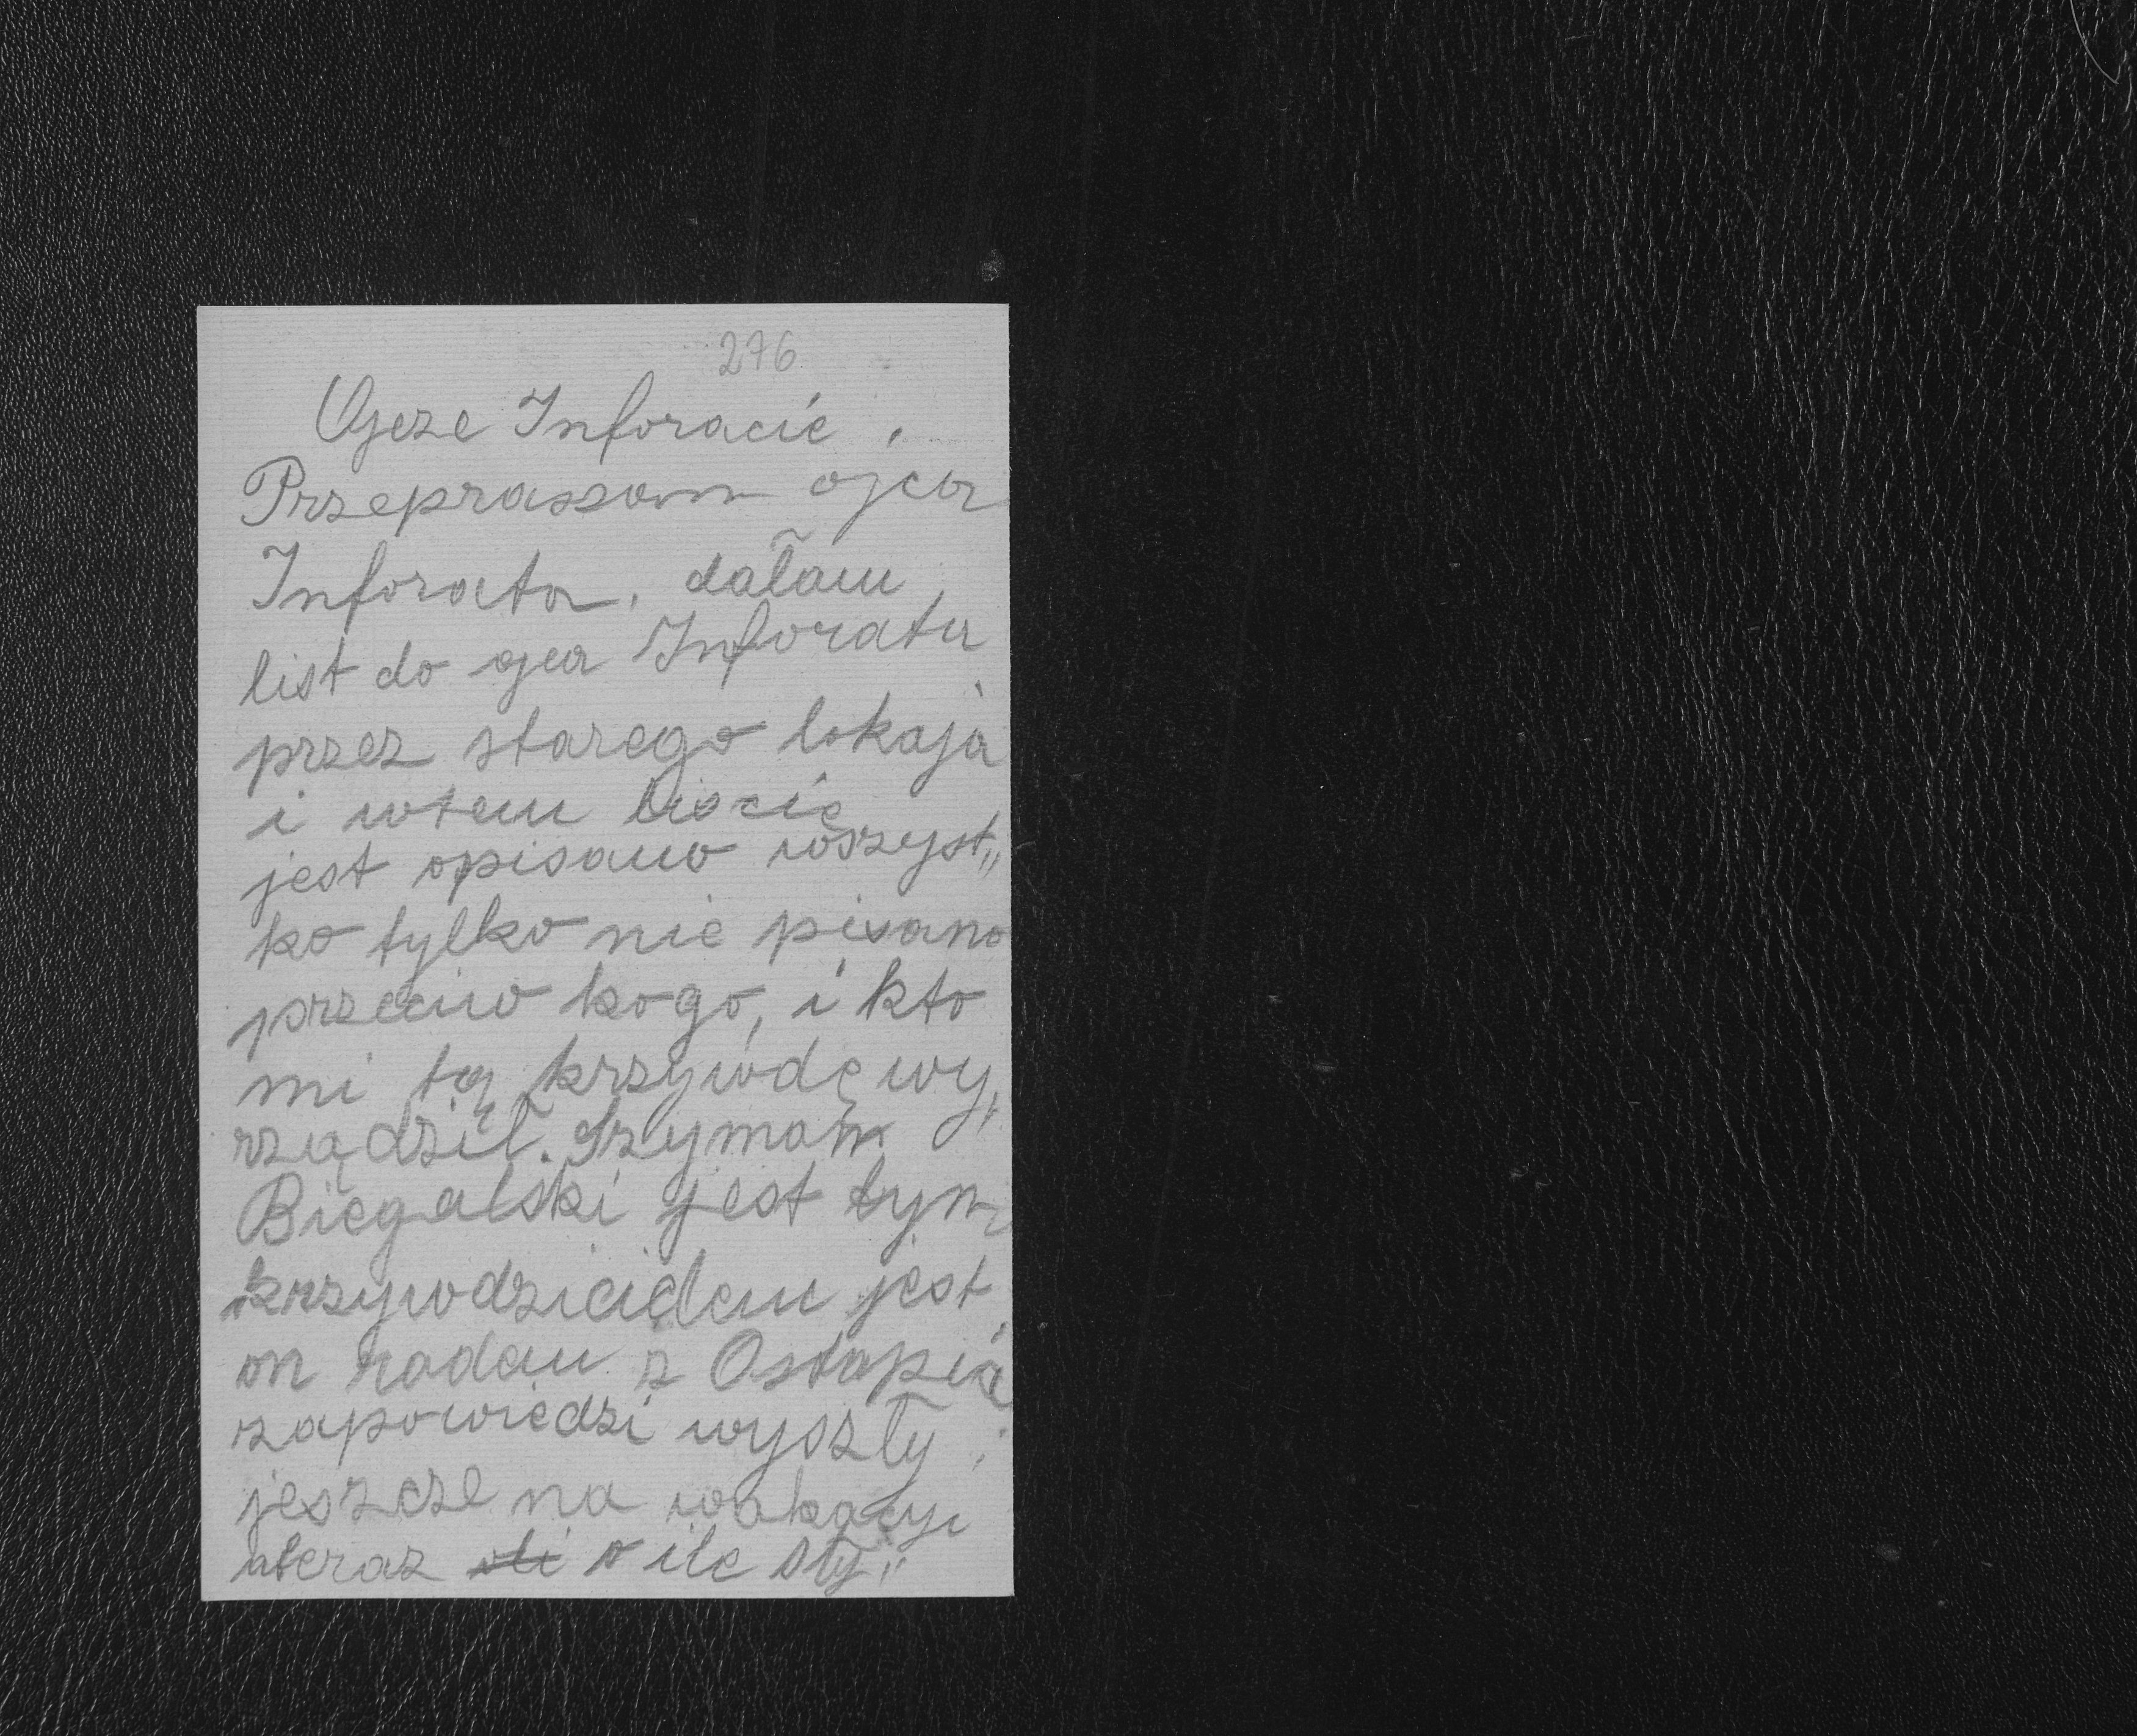 276
Ojcze Inforacie,
Przepraszam ojca
Inforata, dałam
list do ojca Inforatu
przez starego lokaja
i wtem liście
jest opisano wszyst„
ko tylko nie pisano
przeciw kogo, i kto
mi tą krzywdę wy„
rządził. Szymam
Biegalski jest tym
krzywdzicielem jest
on rodem z Ostapia
zapowiedzi wyszły
jeszcze na wakacyi
ateraz o ile sły„